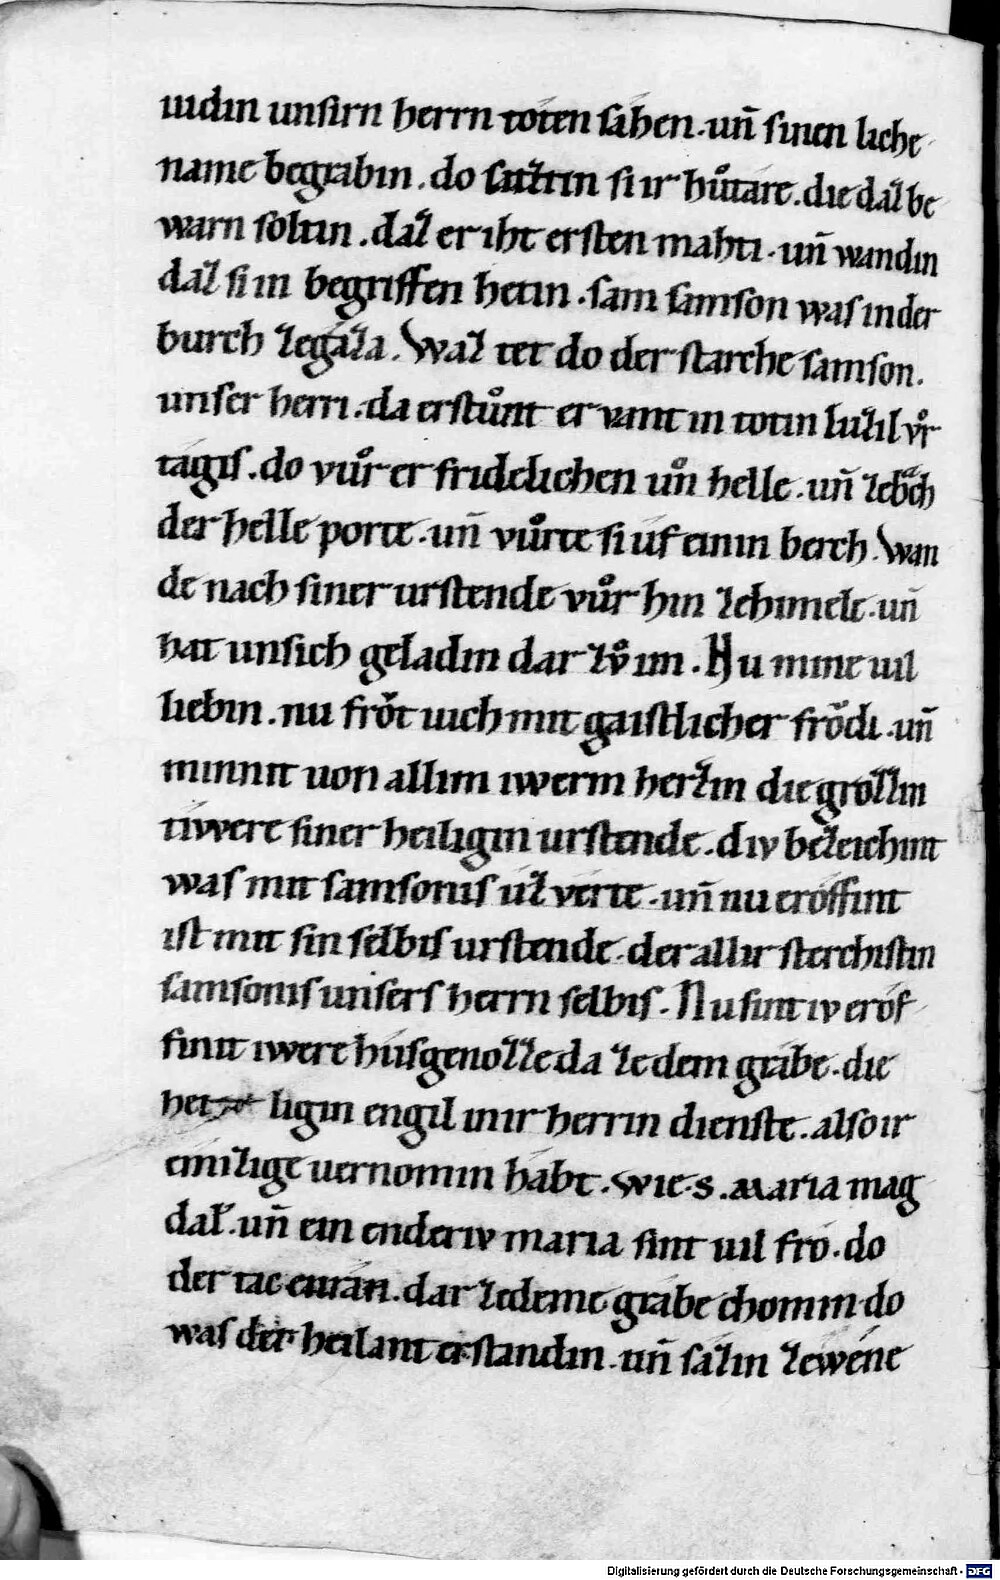 iudin unsirn herrn tôten sâhen. uñ sinen liche
name begrabin. do satztin si ir hůtâre. die daz be
warn soltin. daz er iht ersten mahti. uñ wandin
daz si in begriffen hetin. sam samson was in der
burch zegâza. Waz tet do der starche samson.
unser herri. da erstůnt er vant in totin luzil vͦr
tagis. do vůr er fridelichen uͦn helle. uñ zebͣch
der helle porte. uñ vůrte si ûf einin berch. Wan
de nach siner urstende vůr hin zehimele. uñ
hat unsich geladin dar zvͦ im. Nu mine uil
liebin. nu frǒt iuich mit gaistlicher frǒdi. uñ
minnit uon allim iwerm herzin die grôzzin
tiwere siner heiligin urstende. div bezeichint
was mit samsonis ûz verte. uñ nu eroffint
ist mit sin selbis urstende. der allir sterchistin
samsonis unsers herrn selbis. Nu sint iv eròf
finit iwere hûsgenozze da ze dem grabe. die
hei ligin engil in ir herrin dienste. also ir
einizige uernomin hâbt. wie. s. maria mag
dał. uñ ein enderiv maria sint uil frò. do
der tac enrân. dar zedeme grabe chomin do
was der heilant erstandin. uñ sazin zewêne
Digitalisierung gefördert durch die Deutsche Forschungsgemeinschaft - DFG